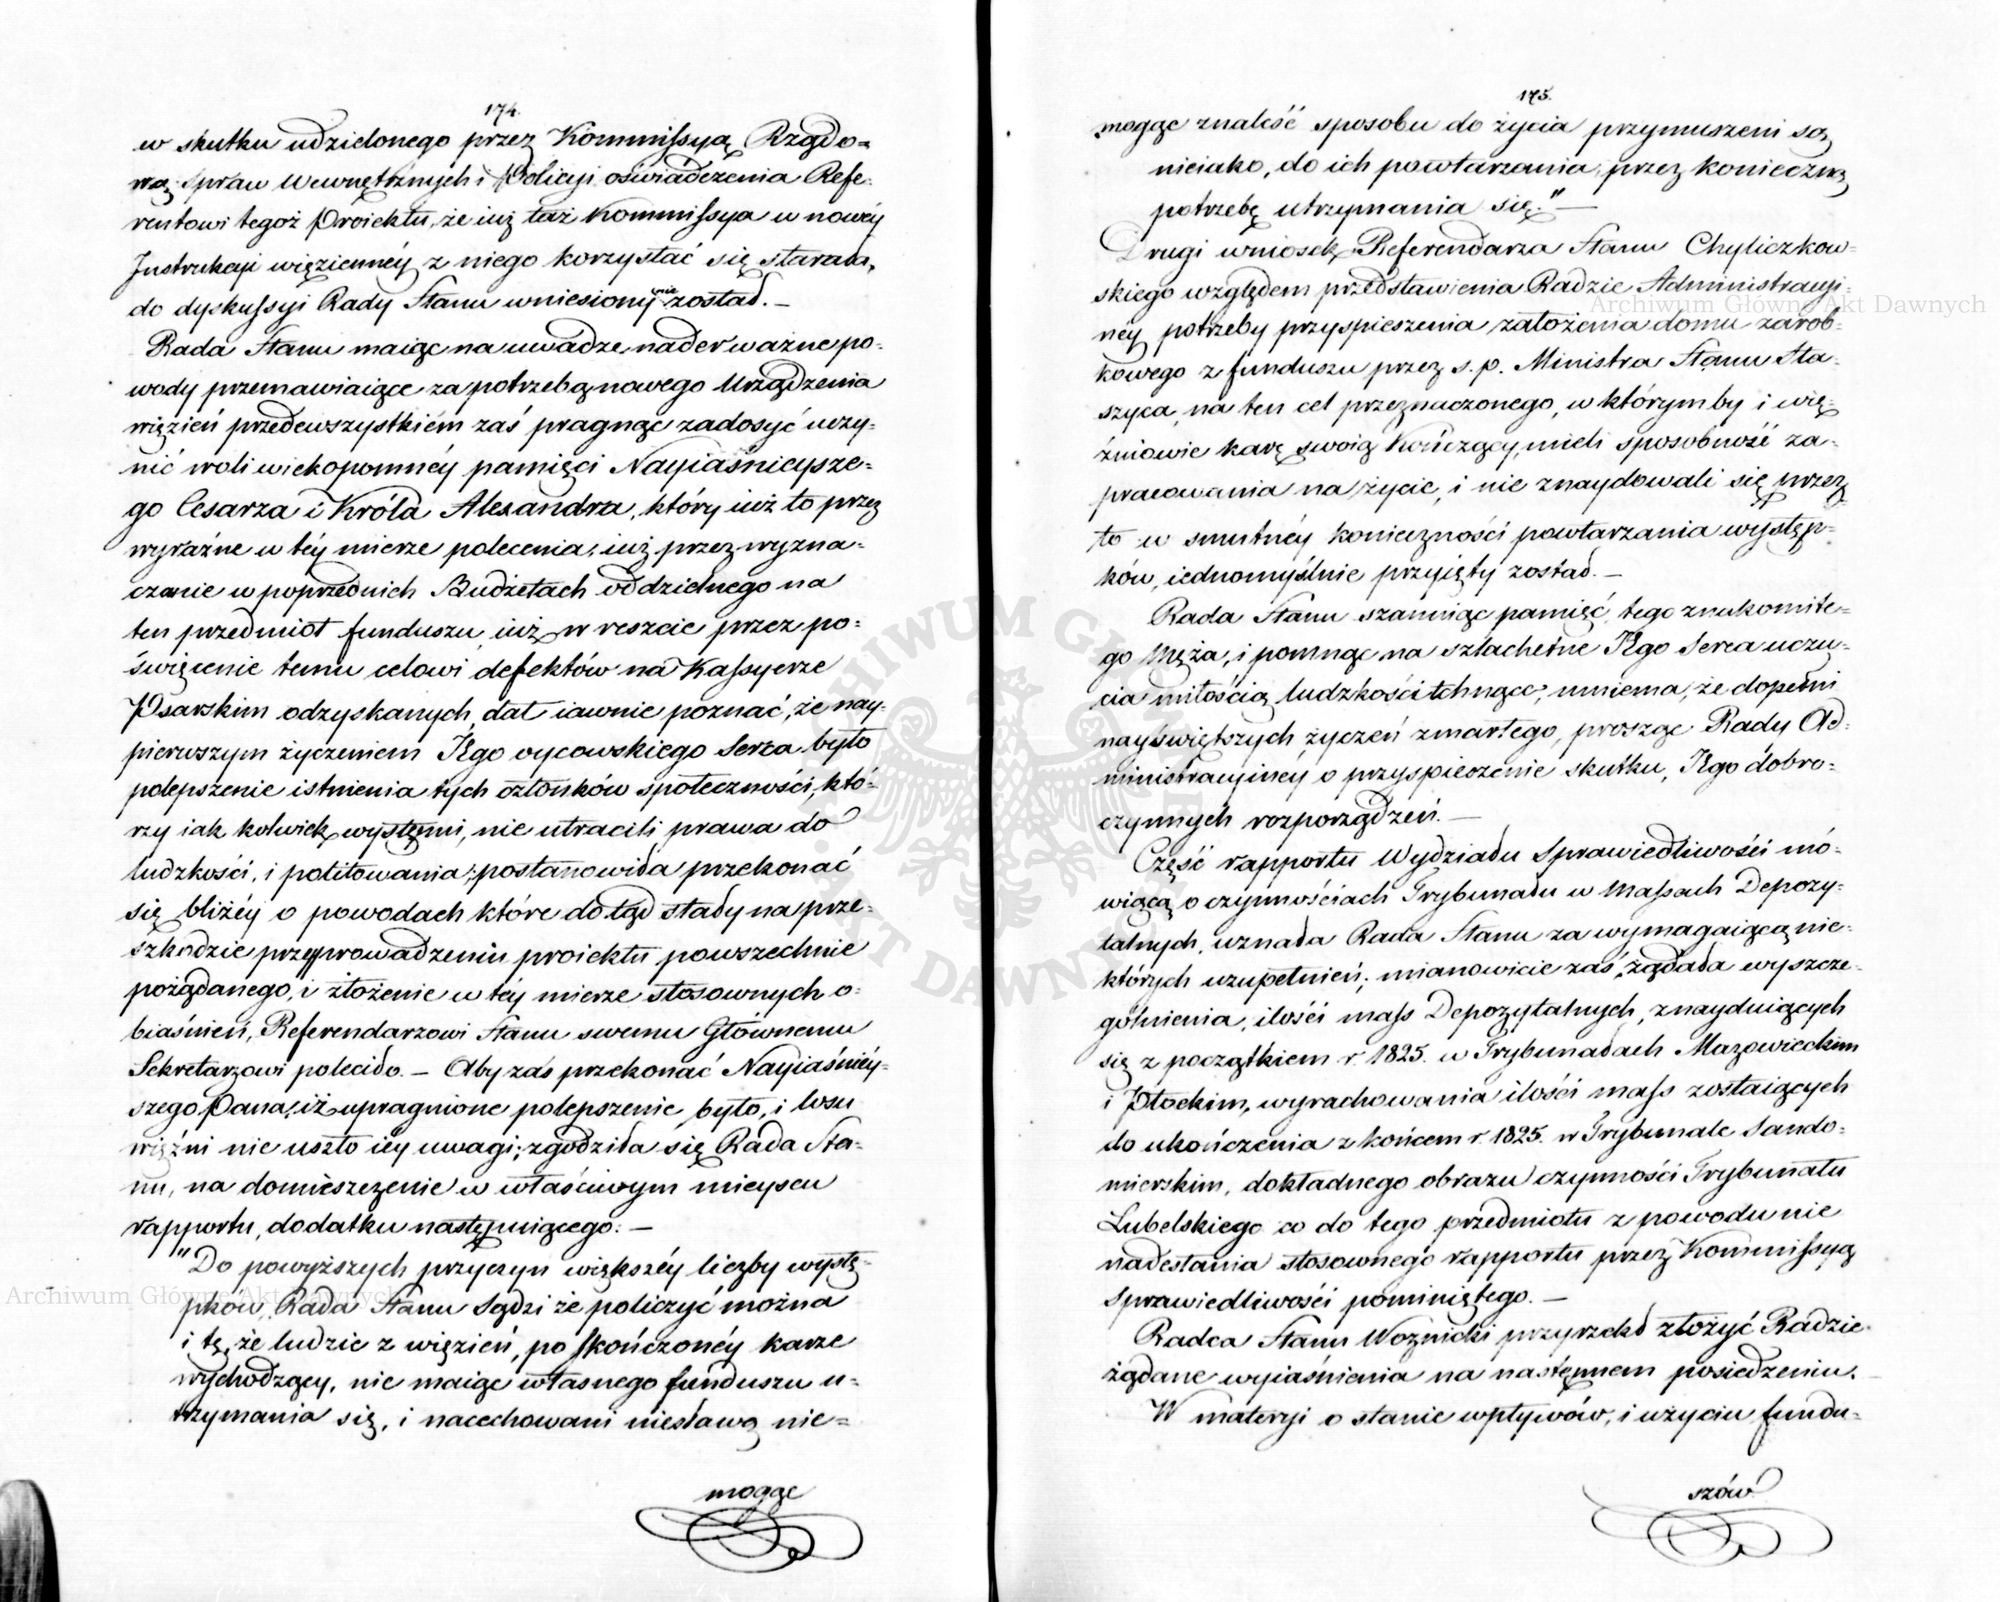 174.
w skutku udzielonego przez Kommissyą Rządo=
wą Spraw Wewnętrznych i Policyi oświadczenia Refe=
rentowi tegoż Proiektu, że iuż taż Kommissya w nowéy
Instrukcyi więziennéy z niego korzystać się starała,
do dyskussyi Rady Stanu wniesiony nie został. —
Rada Stanu maiąc na uwadze nader ważne po=
wody przemawiaiące za potrzebą nowego Urządzenia
więzień przedewszystkiém zaś pragnąc zadosyć uczy=
nić woli wiekopomnéy pamięci Nayiaśnieysze=
go Cesarza i Króla Alexandra, który iuż to przez
wyraźne w téy mierze polecenia, iuż przez wyzna=
czanie w poprzednich Budżetach oddzielnego na
ten przedmiot funduszu, iuż w reszcie przez po=
święcenie temu celowi defektów na Kassyerze
Psarskim odzyskanych, dał iawnie poznać, że nay=
pierwszym życzeniem Jego oycowskiego Serca było
polepszenie istnienia tych członków społeczności, któ=
rzy iak kolwiek występni, nie utracili prawa do
ludzkości, i politowania; postanowiła przekonać
się bliżéy o powodach które dotąd stały na prze=
szkodzie przeprowadzeniu proiektu powszechnie
pożądanego, i złożenie w téy mierze stosownych o=
biaśnień, Referendarzowi Stanu swemu Głównemu
Sekretarzowi poleciło. — Aby zaś przekonać Nayiaśniéy=
szego Pana, iż upragnione polepszenie bytu, i losu
więźni nie uszło iéy uwagi; zgodziła się Rada Sta=
nu, na domieszczenie w właściwym mieyscu
rapportu, dodatku następuiącego: —
"Do powyższych przyczyn większéy liczby wystę=
pków, Rada Stanu Sądzi że policzyć można
i tę, że ludzie z więzień, po skończonéy karze
wychodzący, nie maiąc własnego funduszu u=
trzymania się, i nacechowani niesławą nie=
mogąc
175.
mogąc znaleść sposobu do życia przymuszeni są
nieiako, do ich powtarzania, przez konieczną
potrzebę utrzymania się." —
Drugi wniosek Referendarza Stanu Chyliczkow=
skiego względem przedstawienia Radzie Administracyi=
néy potrzeby przyspieszenia założenia domu zarob=
kowego z funduszu przez ś.p. Ministra Stanu Sta=
szyca, na ten cel przeznaczonego, w którym by i wię=
źniowie karę swoią kończący, mieli sposobność za=
pracowania na życie, i nie znaydowali się przez
to w smutnéy konieczności powtarzania występ=
ków, iednomyślnie przyięty został. —
Rada Stanu szanuiąc pamięć, tego znakomite=
go Męża, i pomnąc na szlachetne Jego Serca uczu=
cia miłością ludzkości tchnące; mniema, że dopełni
nayświętszych życzeń zmarłego, prosząc Rady Ad=
ministracyinéy o przyspieszenie skutku, Jego dobro=
czynnych rozporządzeń. —
Część rapportu Wydziału Sprawiedliwości mó=
wiącą o czynnościach Trybunału w Massach Depozy=
talnych, uznała Rada Stanu za wymagaiącą nie=
których uzupełnień; mianowicie zaś, żądała wyszcze=
gólnienia, ilości mass Depozytalnych, znayduiących
się z początkiem r. 1825. w Trybunałach Mazowieckim
i Płockim, wyrachowania ilości mass zostaiących
do ukończenia z końcem r. 1825. w Trybunale Sando=
mierskim, dokładnego obrazu czynności Trybunału
Lubelskiego co do tego przedmiotu z powodu nie
nadesłania stosownego rapportu przez Kommissyą
Sprawiedliwości pominiętego. —
Radca Stanu Woźnicki przyrzekł złożyć Radzie
żądane wyiaśnienia na następnem posiedzeniu.
W materyi o stanie wpływów, i użyciu fundu=
szów